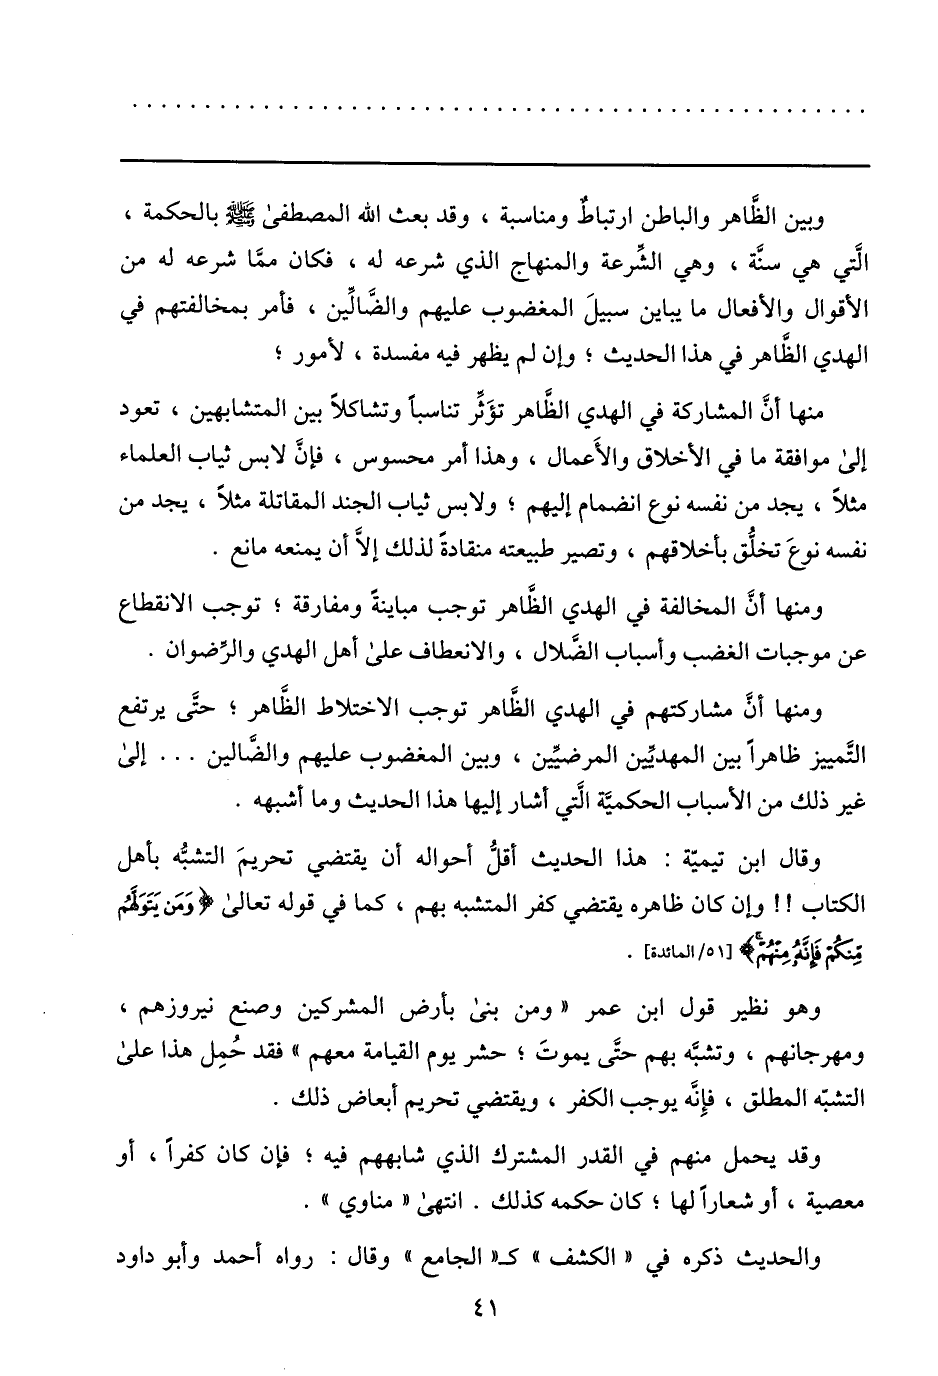 وبين الظَّاهر والباطن ارتباطٌ ومناسبة ، وقد بعث الله المصطفىٰ ﷺ بالحكمة ،
الَّتي هي سنَّة ، وهي الشِّرعة والمنهاج الذي شرعه له ، فكان ممَّا شرعه له من
الأقوال والأفعال ما يباين سبيلَ المغضوب عليهم والضَّالِّين ، فأمر بمخالفتهم في
الهدي الظَّاهر في هذا الحديث ؛ وإن لم يظهر فيه مفسدة ، لأمور ؛
منها أنَّ المشاركة في الهدي الظَّاهر تؤَثِّر تناسباً وتشاكلاً بين المتشابهين ، تعود
إلىٰ موافقة ما في الأخلاق والأَعمال ، وهذا أمر محسوس ، فإنَّ لابس ثياب العلماء
مثلاً ، يجد من نفسه نوع انضمام إليهم ؛ ولابس ثياب الجند المقاتلة مثلاً ، يجد من
نفسه نوعَ تخلُّق بأخلاقهم ، وتصير طبيعته منقادةً لذلك إلاَّ أن يمنعه مانع .
ومنها أنَّ المخالفة في الهدي الظَّاهر توجب مباينةً ومفارقة ؛ توجب الانقطاع
عن موجبات الغضب وأسباب الضَّلال ، والانعطاف علىٰ أهل الهدي والرِّضوان .
ومنها أنَّ مشاركتهم في الهدي الظَّاهر توجب الاختلاط الظَّاهر ؛ حتَّى يرتفع
التَّمييز ظاهراً بين المهديِّين المرضيِّين ، وبين المغضوب عليهم والضَّالين ... إلىٰ
غير ذلك من الأسباب الحكميَّة الَّتي أشار إليها هذا الحديث وما أشبهه .
وقال ابن تيميّة : هذا الحديث أقلُّ أحواله أن يقتضي تحريمَ التشبُّه بأهل
الكتاب !! وإن كان ظاهره يقتضي كفر المتشبه بهم ، كما في قوله تعالىٰ ﴿ وَمَن يَتَوَلَّهُم
مِّنكُمْ فَإِنَّهُۥ مِنْهُمْ ۗ﴾ [٥١/ المائدة] .
وهو نظير قول ابن عمر « ومن بنىٰ بأرض المشركين وصنع نيروزهم ،
ومهرجانهم ، وتشبَّه بهم حتَّى يموتَ ؛ حشر يوم القيامة معهم » فقد حُمِل هذا علىٰ
التشبّه المطلق ، فإنَّه يوجب الكفر ، ويقتضي تحريم أبعاض ذلك .
وقد يحمل منهم في القدر المشترك الذي شابههم فيه ؛ فإن كان كفراً ، أو
معصية ، أو شعاراً لها ؛ كان حكمه كذلك . انتهىٰ « مناوي » .
والحديث ذكره في « الكشف » كـ« الجامع » وقال : رواه أحمد وأبو داود
٤١